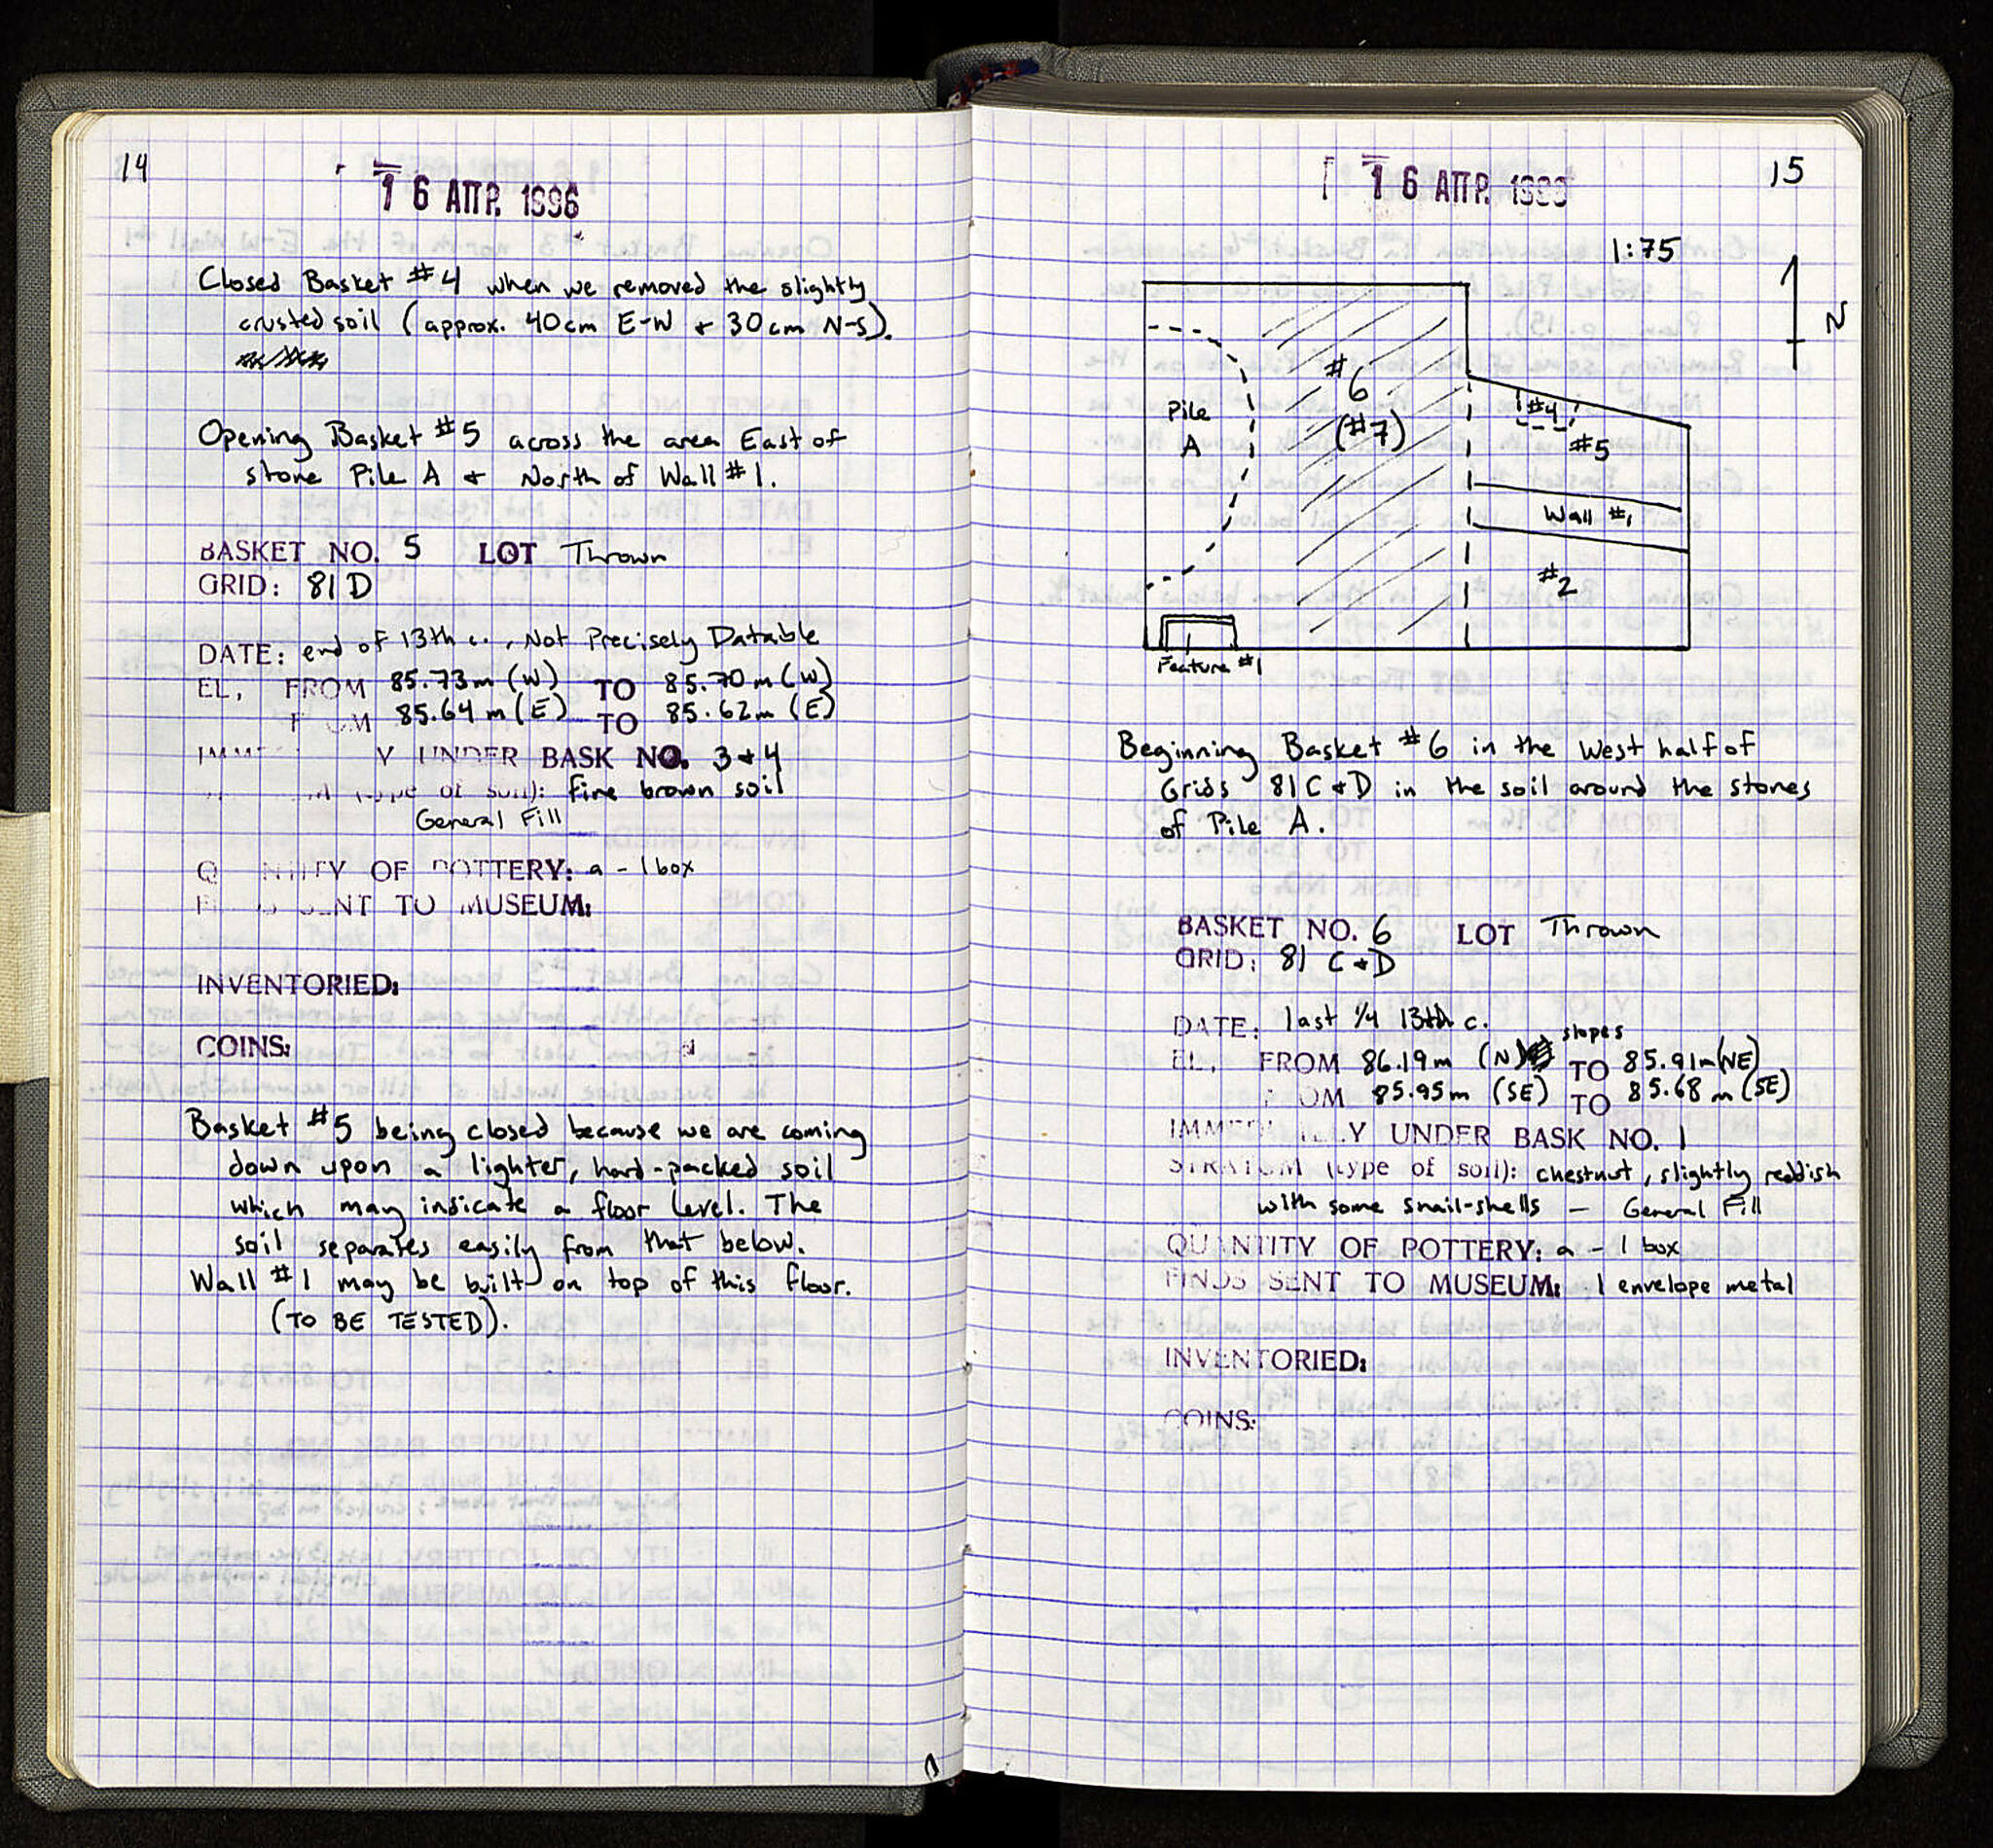 14
16 ΑΠΡ. 1996
Closed Basket #4 when we removed the slightly
crusted soil (approx. 40cm E-W + 30cm N-S).
Opening Basket #5 across the area East of
stone Pile A + North of Wall #1.
BASKET NO. 5 LOT Thrown
GRID: 81 D
DATE: end of 13th c., Not Precisely Datable
EL, FROM 85.73m (W) TO 85.70m (W)
FROM 85.64m (E) TO 85.62m (E)
UNDER BASK NO. 3+4
(type of soil): fine brown soil
General Fill
QUANTITY OF POTTERY: a - 1 box
FINDS SENT TO MUSEUM:
INVENTORIED:
COINS:
Basket #5 being closed because we are coming
down upon a lighter, hard-packed soil
which may indicate a floor level. The
soil separates easily from that below.
Wall #1 may be built on top of this floor.
(TO BE TESTED).
15
16 ΑΠΡ. 1996
1:75
N
#6
(#7)
Pile
A
#4
#5
Wall #1
#2
Feature #1
Beginning Basket #6 in the West half of
Grids 81 C + D in the soil around the stones
of Pile A.
BASKET NO. 6 LOT Thrown
GRID: 81 C+D
DATE: last 1/4 13th c.
slopes
EL, FROM 86.19m (N) TO 85.91m (NE)
FROM 85.95m (SE) TO 85.68m (SE)
IMMEDIATELY UNDER BASK NO. 1
STRATUM (type of soil): chestnut, slightly reddish
with some snail-shells — General Fill
QUANTITY OF POTTERY: a - 1 box
FINDS SENT TO MUSEUM: 1 envelope metal
INVENTORIED:
COINS: